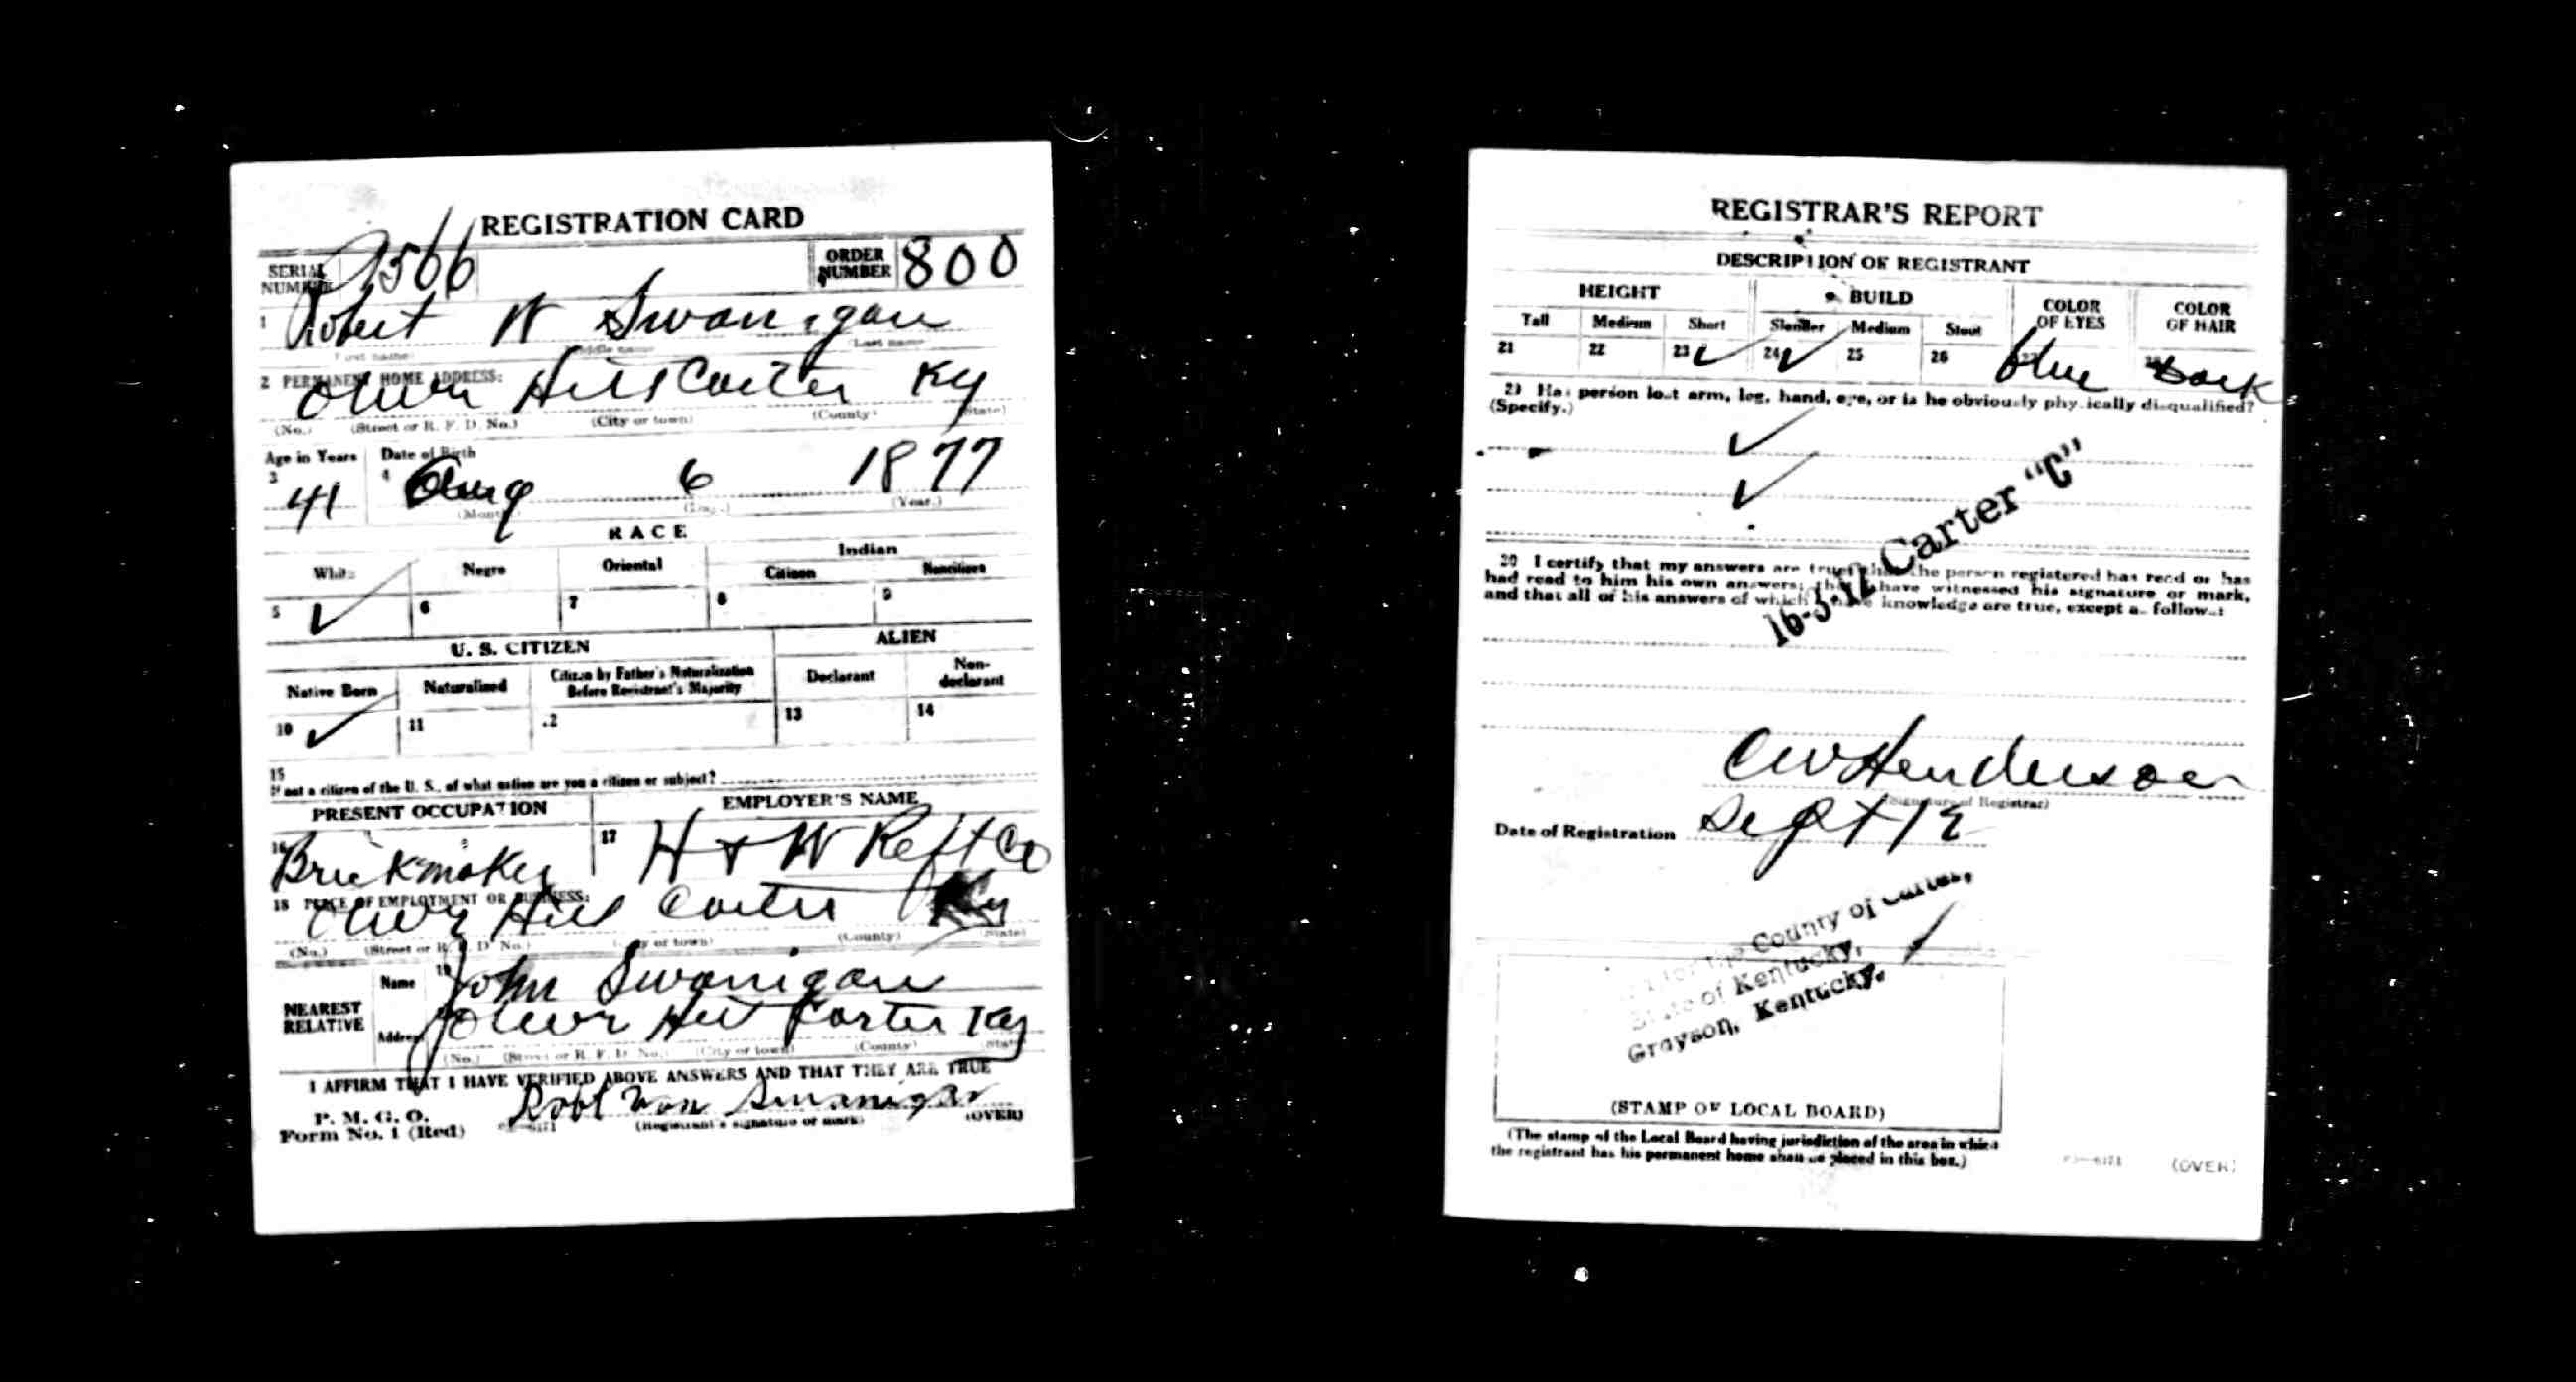 REGISTRATION CARD
SERIAL NUMBER 2566 ORDER NUMBER 800
1 Robert W Swanigan
First name Middle name Last name
2 PERMANENT HOME ADDRESS:
Olive Hill Carter Ky
(No.) (Street or R. F. D. No.) (City or town) (County) (State)
Age in Years Date of Birth
3 41 4 Aug 6 1877
(Month.) (Day.) (Year.)
RACE
White Negro Oriental Indian
Citizen Noncitizen
5 ✓ 6 7 8 9
U. S. CITIZEN ALIEN
Native Born Naturalized Citizen by Father's Naturalization Before Registrant's Majority Declarant Non-declarant
10 ✓ 11 12 13 14
15
If not a citizen of the U. S., of what nation are you a citizen or subject?
PRESENT OCCUPATION EMPLOYER'S NAME
16 Brickmaker 17 H & W Reft Co
18 PLACE OF EMPLOYMENT OR BUSINESS:
Olive Hill Carter Ky
(No.) (Street or R. F. D. No.) (City or town) (County) (State)
NEAREST RELATIVE
Name 19 John Swanigan
Address Olive Hill Carter Ky
(No.) (Street or R. F. D. No.) (City or town) (County) (State)
I AFFIRM THAT I HAVE VERIFIED ABOVE ANSWERS AND THAT THEY ARE TRUE
P. M. G. O.
Form No. 1 (Red) Robt Swanigan
(Registrant's signature or mark) (OVER)
REGISTRAR'S REPORT
DESCRIPTION OF REGISTRANT
HEIGHT BUILD COLOR OF EYES COLOR OF HAIR
Tall Medium Short Slender Medium Stout
21 22 23 ✓ 24 ✓ 25 26 27 blue 28 Dark
29 Has person lost arm, leg, hand, eye, or is he obviously physically disqualified?
(Specify.)
✓
✓
16-3-12 Carter "C"
30 I certify that my answers are true; that the person registered has read or has
had read to him his own answers; that I have witnessed his signature or mark,
and that all of his answers of which I have knowledge are true, except as follows:
C W Henderson
(Signature of Registrar)
Date of Registration Sept 12
for the County of Carter,
State of Kentucky,
Grayson, Kentucky.
(STAMP OF LOCAL BOARD)
(The stamp of the Local Board having jurisdiction of the area in which
the registrant has his permanent home shall be placed in this box.)
(OVER)